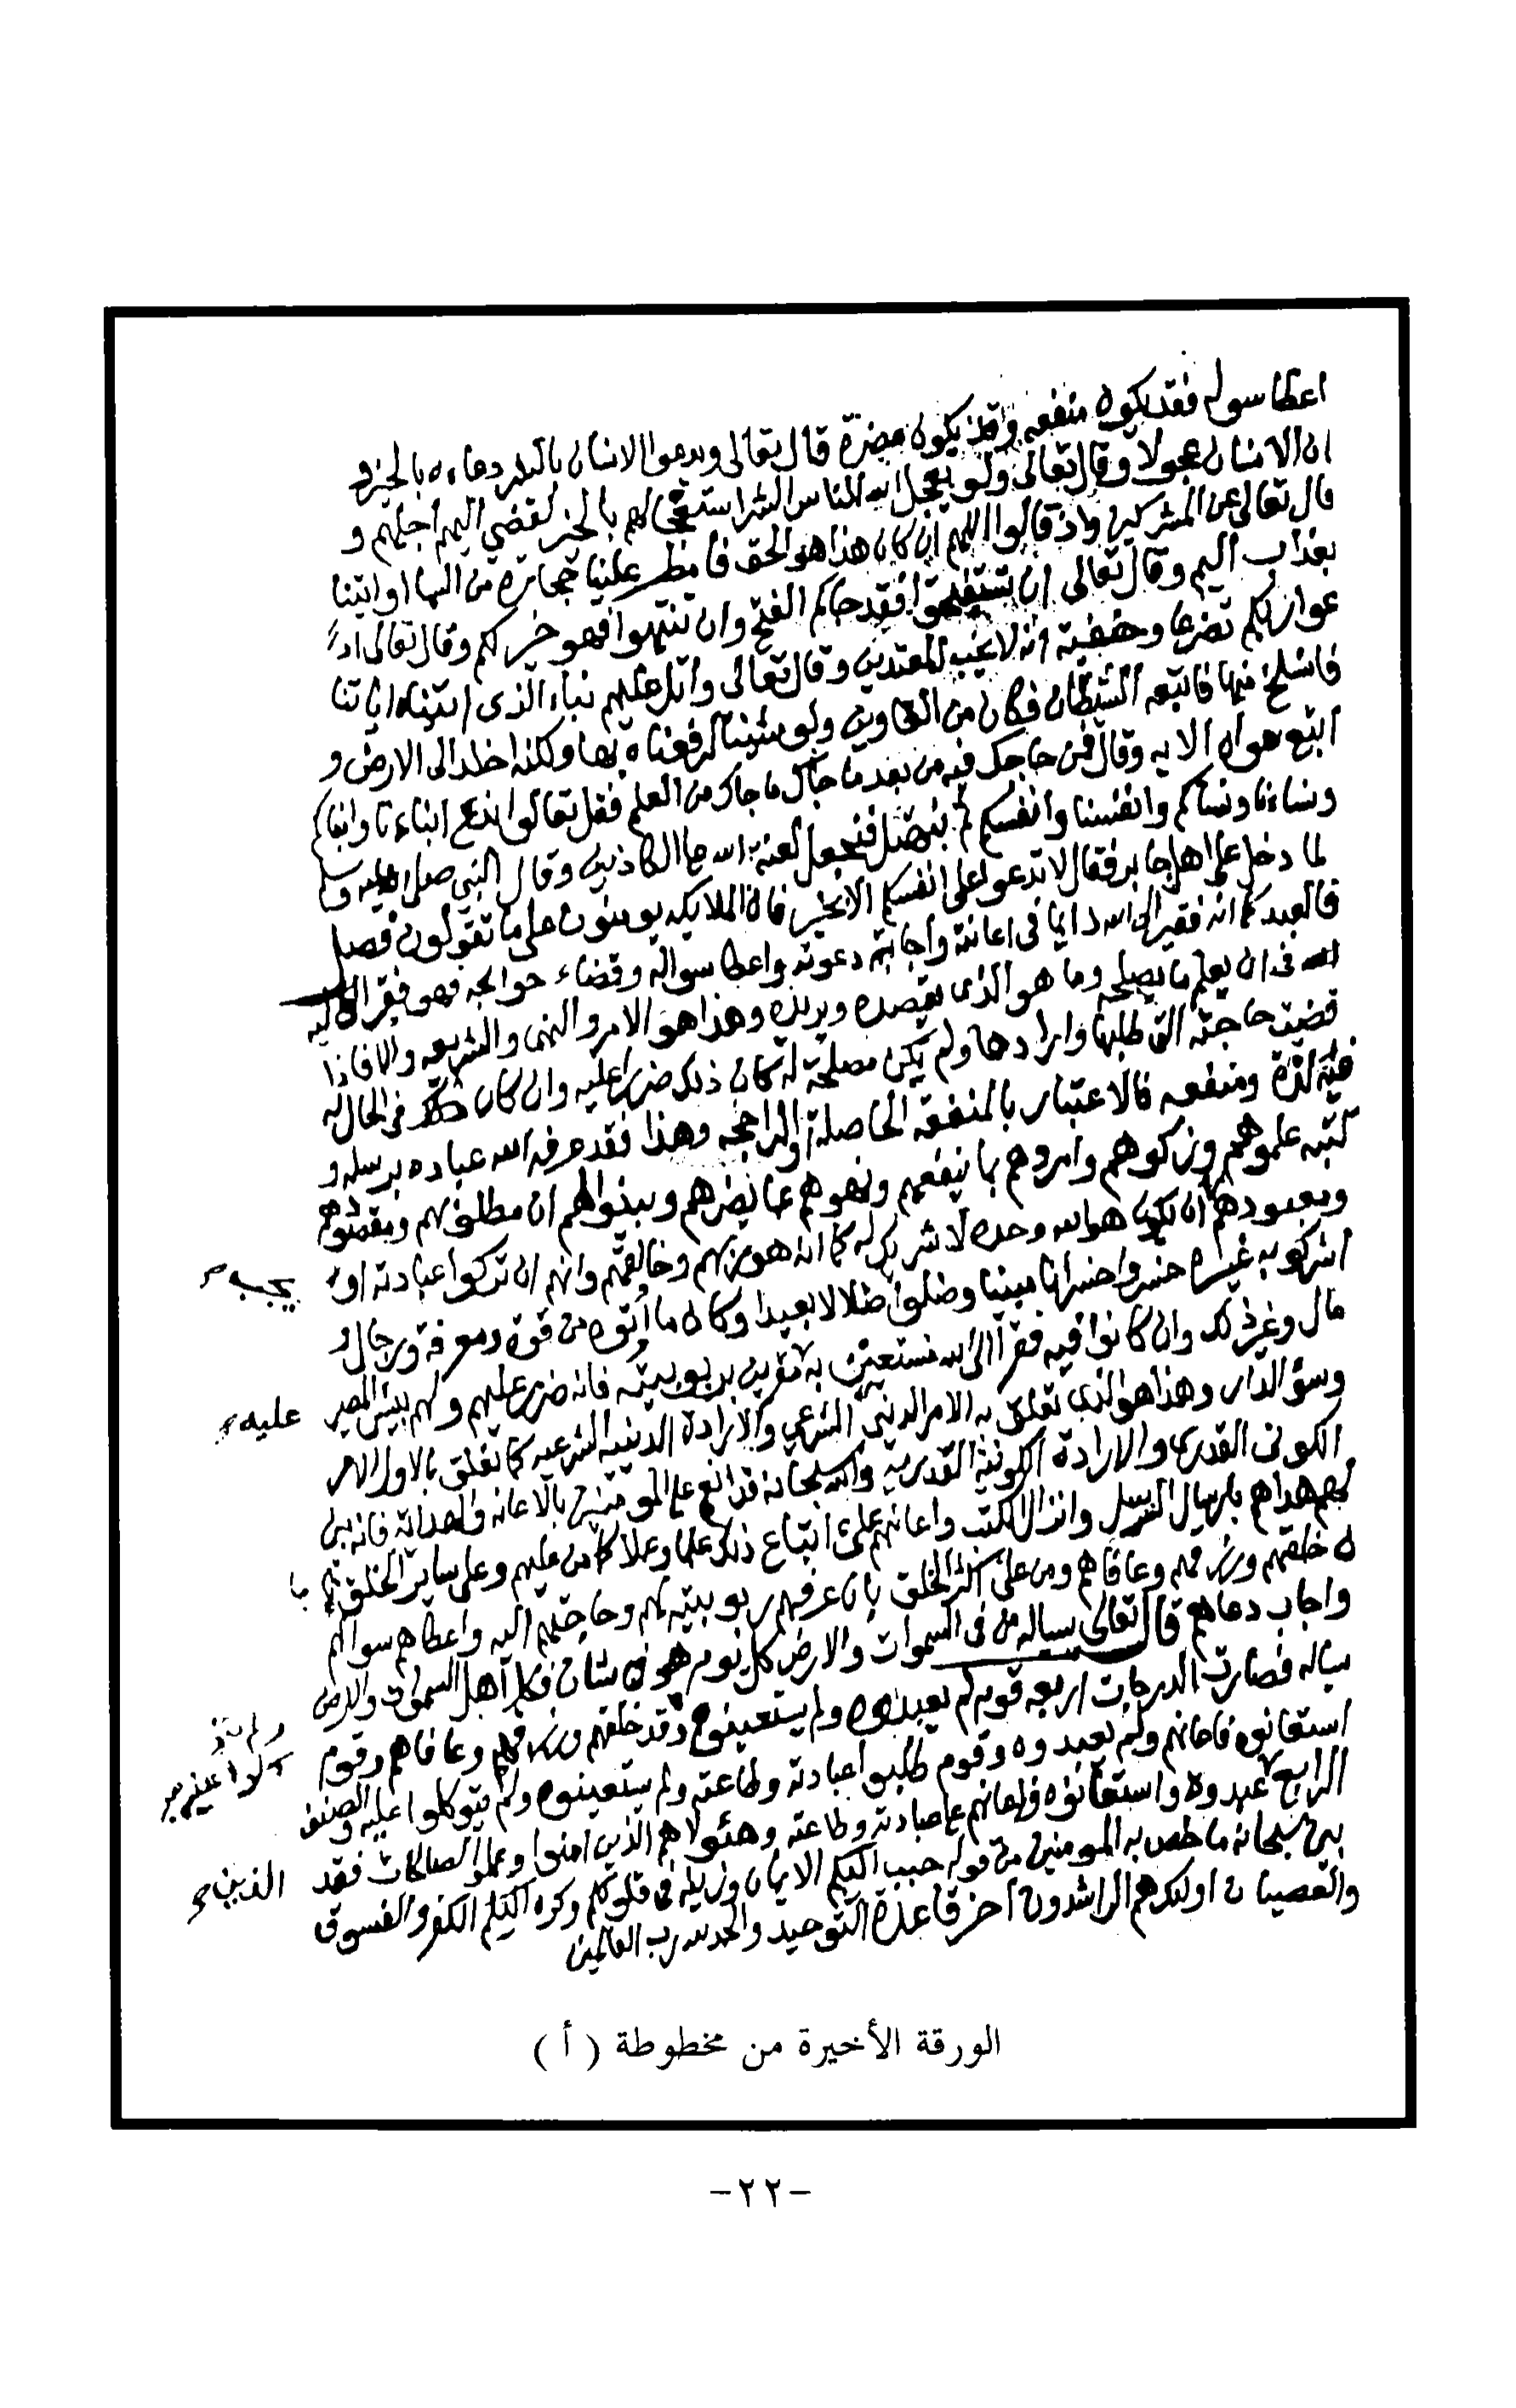 اعطا سوله فقد يكون منفعه وقد يكون مضرة قال تعالى ويدعوا الانسان بالشر دعاءه بالخير و
ان الانسان عجولا وقال تعالى ولو يعجل الله للناس الشر استعجالهم بالخير لقضي اليهم اجلهم و
قال تعالى عن المشركين واذ قالوا اللهم ان كان هذا هو الحق فامطر علينا حجارة من السما او ائتنا
بعذاب اليم وقال تعالى ان تستفتحوا فقد جاكم الفتح وان تنتهوا فهو خير لكم وقال تعالى اد
عوا ربكم تضرعا وخفية انه لا يحب المعتدين وقال تعالى واتل عليهم نباء الذى اتيناه اياتنا
فانسلخ منها فاتبعه الشيطان فكان من الغاوين ولو شئنا لرفعناه بها ولكنه اخلد الى الارض و
اتبع هواه الايه وقال فمن حاجك فيه من بعد ما جاك من العلم فقل تعالوا ندع ابناءنا وابناكم
ونساءنا ونساكم وانفسنا وانفسكم ثم نبتهل فنجعل لعنة الله على الكاذبين وقال النبي صلى الله عليه وسلم
لما دخل على اهل جابر فقال لا تدعوا على انفسكم الا بخير فان الملايكه يومنون على ما تقولون فصل
فالعبد كما انه فقير الى الله دايما فى اعانته واجابة دعوته واعطا سواله وقضاء حوايجه فهو فقير اليه
فى ان يعلم ما يصلحه وما هو الذى يقصده ويريده وهذا هو الامر والنهى والشريعه والا فاذا
قضيت حاجته التى طلبها وارادها ولم يكن مصلحة له كان ذلك ضررا عليه وان كان فى الحال له
فيه لذة ومنفعه فالاعتبار بالمنفعة الحاصلة والراجحه وهذا فقد عرفه الله عباده برسله و
كتبه علموهم وزكوهم وامروهم بما ينفعهم ونهوهم عما يضرهم وبينوا لهم ان مطلوبهم ومقصودهم
ومعبودهم ان يكون هو الله وحده لا شريك له كما انه هو ربهم وخالقهم وانهم ان تركوا عبادته او
يجب
اشركوا به غيره خسروا خسرانا مبينا وضلوا ضلالا بعيدا وكان ما اوتوه من قوة ومعرفة وجاه و
مال وغير ذلك وان كانوا فيه فقرا الى الله مستعينين به مقرين بربوبيته فانه ضرر عليهم ولهم بئس المصير
عليه
وسؤ الدار وهذا هو الذى تعلق به الامر الديني الشرعي والارادة الدينيه الشرعيه كما تعلق بالاول الامر
الكونى القدرى والارادة الكونية القدريه والله سبحانه قد انعم على المومنين بالاعانه والهدايه فانه بين
لهم هداهم بارسال الرسل وانزال الكتب واعانهم على اتباع ذلك علما وعملا كما من عليهم وعلى ساير الخلق با
ن خلقهم ورزقهم وعافاهم ومن على اكثر الخلق بان عرفهم ربوبيته لهم وحاجتهم اليه واعطاهم سوالهم
واجاب دعاهم قال تعالى يساله من فى السموات والارض كل يوم هو فى شان فكل اهل السموات والارض
يساله فصارت الدرجات اربعه قوم لم يعبدوه ولم يستعينوه وقد خلقهم ورزقهم وعافاهم وقوم
استعانوه فاعانهم ولم يعبدوه وقوم طلبوا عبادته وطاعته ولم يستعينوه ولم يتوكلوا عليه والصنف
الرابع عبدوه واستعانوه فاعانهم على عبادته وطاعته وهئولا هم الذين امنوا وعملوا الصالحات فقد
الذين
بين سبحانه ما خص به المومنين من قوله حبب اليكم الايمان وزينه فى قلوبكم وكره اليكم الكفر والفسوق
والعصيان اوليك هم الراشدون اخر قاعدة التوحيد والحمد لله رب العالمين
الورقة الأخيرة من مخطوطة ( أ )
-٢٢-